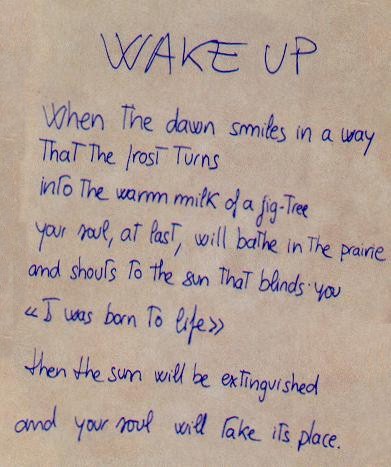 WAKE UP
When the dawn smiles in a way
That The frost Turns
into The warm milk of a fig-Tree
your soul, at last, will bathe in The prairie
and shouts To the sun That blinds you
«I was born To life»
then the sun will be extinguished
and your soul will Take its place.